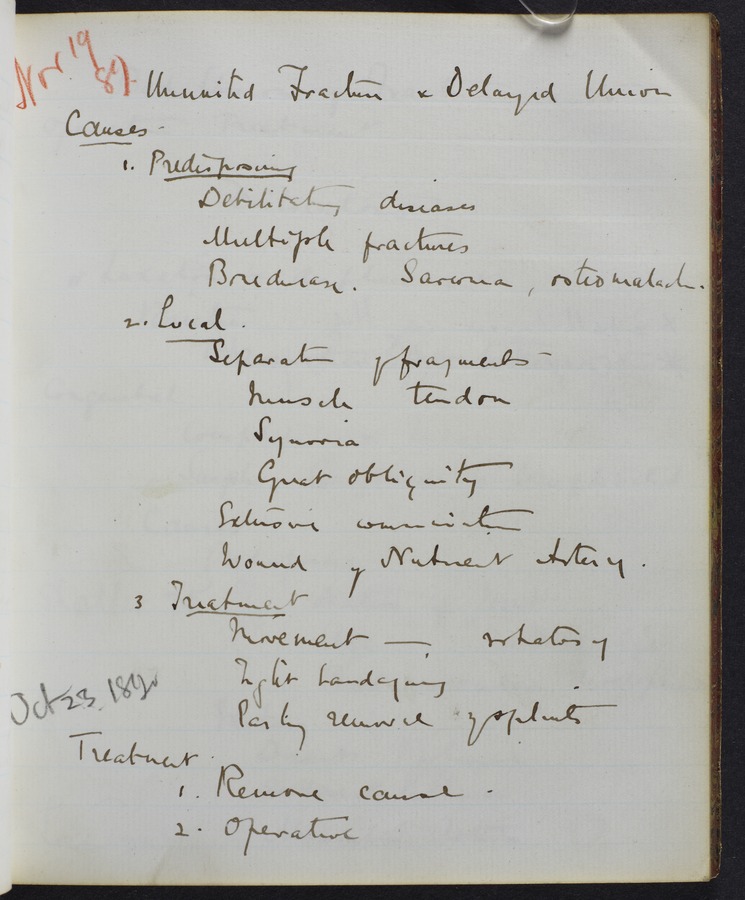 Nov 19 87
Ununited Fracture & Delayed Union
Causes -
1. Predisposing
Debilitating diseases
Multiple fractures
Bone disease. Sarcoma, osteomalach.
2. Local.
Separation of fragments -
Muscle tendon
Synovia
Great obliquity
Extensive comminution
Wound of Nutrient Artery.
3 Treatment
Movement — rotatory
Tight bandaging
Early removal of splints
Oct 23. 189
Treatment.
1. Remove cause -
2. Operative